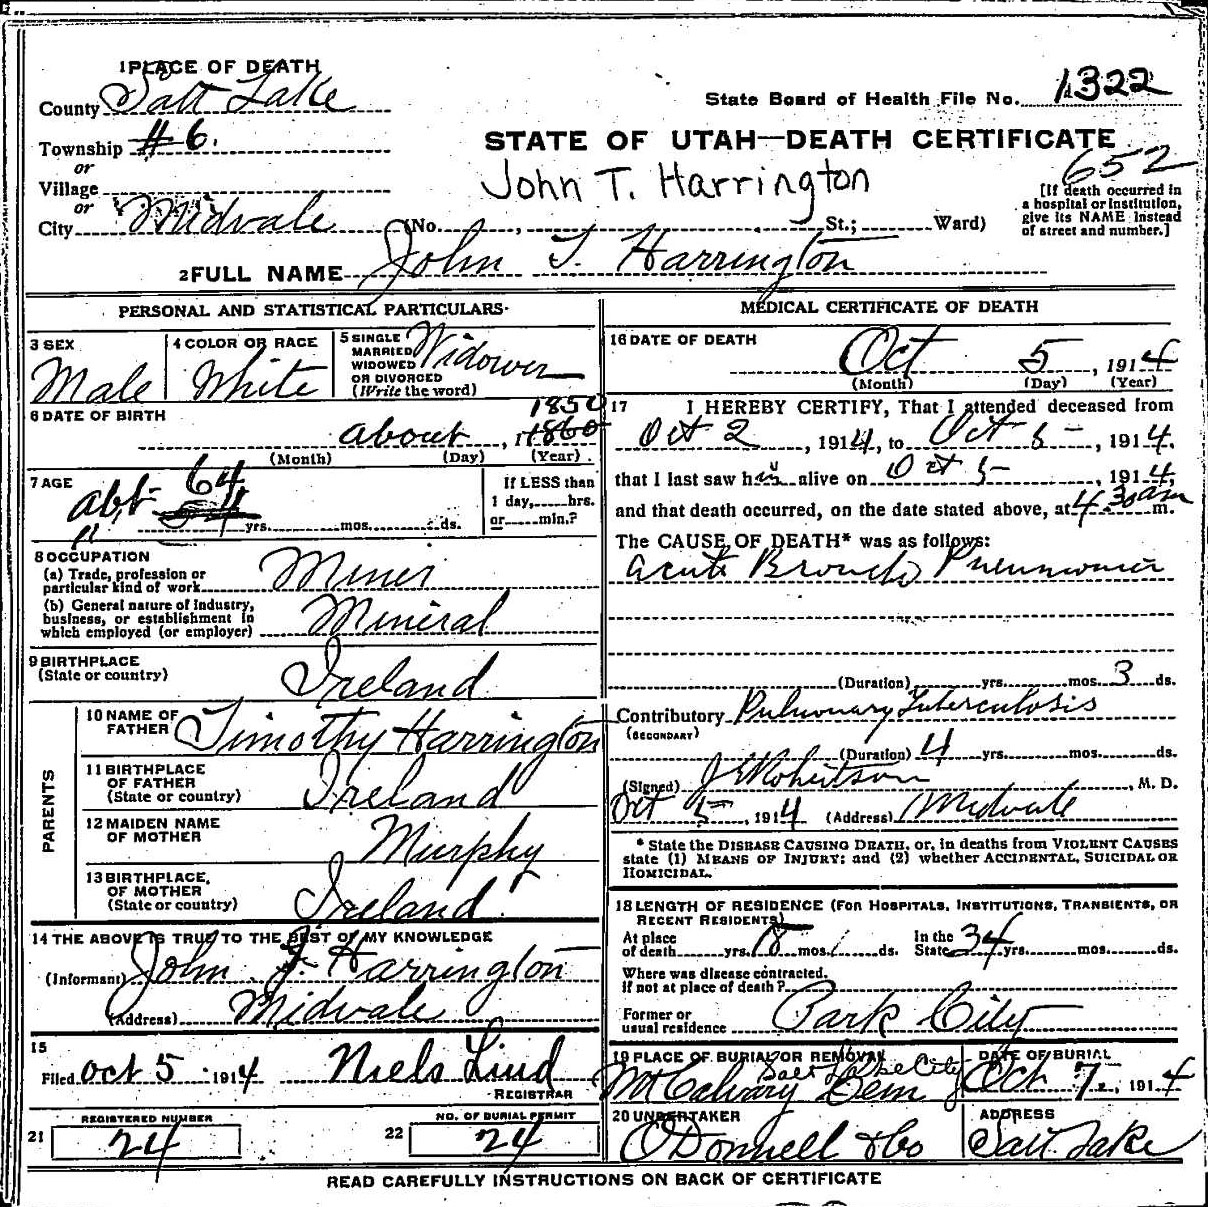 1 PLACE OF DEATH
County Salt Lake
State Board of Health File No. 1322
Township #6.
STATE OF UTAH—DEATH CERTIFICATE
or
Village
John T. Harrington
652
[If death occurred in a hospital or institution, give its NAME instead of street and number.]
or
City Midvale (No. , St.; Ward)
2 FULL NAME John T. Harrington
PERSONAL AND STATISTICAL PARTICULARS
3 SEX
Male
4 COLOR OR RACE
White
5 SINGLE MARRIED WIDOWED OR DIVORCED
(Write the word)
Widower
6 DATE OF BIRTH
1850
about , 1860
(Month) (Day) (Year)
7 AGE
64
abt 54 yrs. mos. ds.
"
If LESS than
1 day, hrs.
or min.?
8 OCCUPATION
(a) Trade, profession or
particular kind of work Miner
(b) General nature of industry,
business, or establishment in
which employed (or employer) Mineral
9 BIRTHPLACE
(State or country) Ireland
PARENTS
10 NAME OF
FATHER Timothy Harrington
11 BIRTHPLACE
OF FATHER
(State or country) Ireland
12 MAIDEN NAME
OF MOTHER Murphy
13 BIRTHPLACE
OF MOTHER
(State or country) Ireland
14 THE ABOVE IS TRUE TO THE BEST OF MY KNOWLEDGE
(Informant) John J. Harrington
(Address) Midvale
15
Filed Oct 5 1914 Niels Lind
REGISTRAR
21 REGISTERED NUMBER
24
22 NO. OF BURIAL PERMIT
24
MEDICAL CERTIFICATE OF DEATH
16 DATE OF DEATH
Oct 5, 1914
(Month) (Day) (Year)
17 I HEREBY CERTIFY, That I attended deceased from
Oct 2, 1914, to Oct 5, 1914,
that I last saw him alive on Oct 5, 1914,
and that death occurred, on the date stated above, at 4.30 am m.
The CAUSE OF DEATH* was as follows:
Acute Broncho Pneumonia
(Duration) yrs. mos. 3 ds.
Contributory Pulmonary Tuberculosis
(SECONDARY)
(Duration) 4 yrs. mos. ds.
(Signed) J E Robertson, M. D.
Oct 5, 1914 (Address) Midvale
* State the DISEASE CAUSING DEATH, or, in deaths from VIOLENT CAUSES
state (1) MEANS OF INJURY; and (2) whether ACCIDENTAL, SUICIDAL OR
HOMICIDAL.
18 LENGTH OF RESIDENCE (FOR HOSPITALS, INSTITUTIONS, TRANSIENTS, OR
RECENT RESIDENTS)
At place
of death yrs. 8 mos. ds.
In the
State 34 yrs. mos. ds.
Where was disease contracted.
if not at place of death?
Former or
usual residence Park City
19 PLACE OF BURIAL OR REMOVAL
Salt Lake City
Mt Calvary Cem
DATE OF BURIAL
Oct 7, 1914
20 UNDERTAKER
O'Donnell & Co
ADDRESS
Salt Lake
READ CAREFULLY INSTRUCTIONS ON BACK OF CERTIFICATE